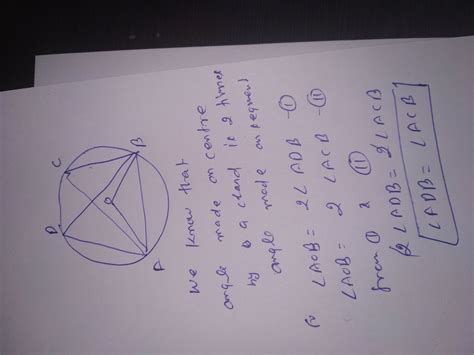 D
C
A
B
O
We know that
angle made on centre
by a chord is 2 times
angle made on segment
so ∠AOB = 2∠ADB -①
∠AOB = 2 ∠ACB -②
from ① & ②
2∠ADB = 2∠ACB
∠ADB = ∠ACB